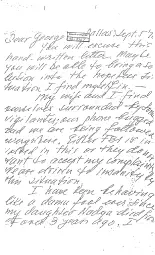 Dear George, Dallas Sept. 5
You will excuse this
hand written letter. Maybe
you will be able to bring a so-
lution into the hopeless si-
tuation I find myself in.
My wife and I find
ourselves surrounded by some
vigilantes; our phone bugged;
and we are being followed
everywhere. Either FBI is in-
volved in this or they don't
want to accept my complaints.
are driven to insanity by
this situation.
I have been behaving
like a damn fool ever since
my daughter Nadya died
3 years ago. I